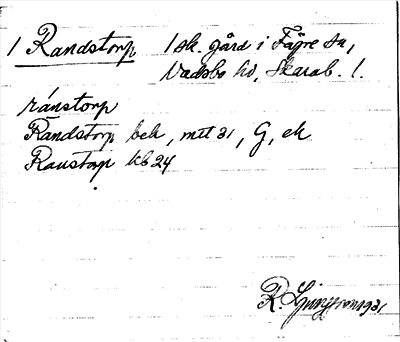 1 Randstorp 1 sk. gård i Fägre sn,
Vadsbo hd, Skarab. l.
ránstorp
Randstorp bek, mtl 31, G, ek
Ranstorp kb 24
R. Ljunggren 1931